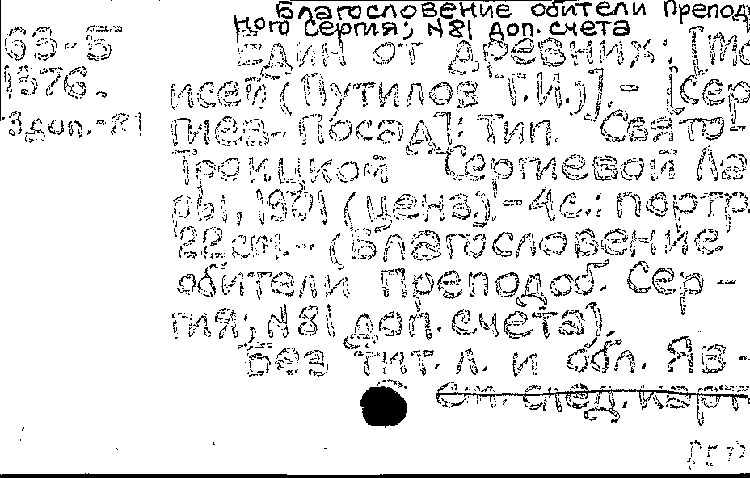 Благословение обители Препод
ного Сергия; №81 доп. счета
63-5
1376.
3 доп.-81
Един от древних: [Мо
исей (Путилов Т.И.)]. - [Сер
гиев-Посад]: Тип. Свято-
Троицкой Сергиевой Ла
ры, 1901 (ценз). - 4с.: портр.
22см. - (Благословение
обители Преподоб. Сер-
гия; №81 доп. счета).
Без тит. л. и обл. Яв-
См. след. карт